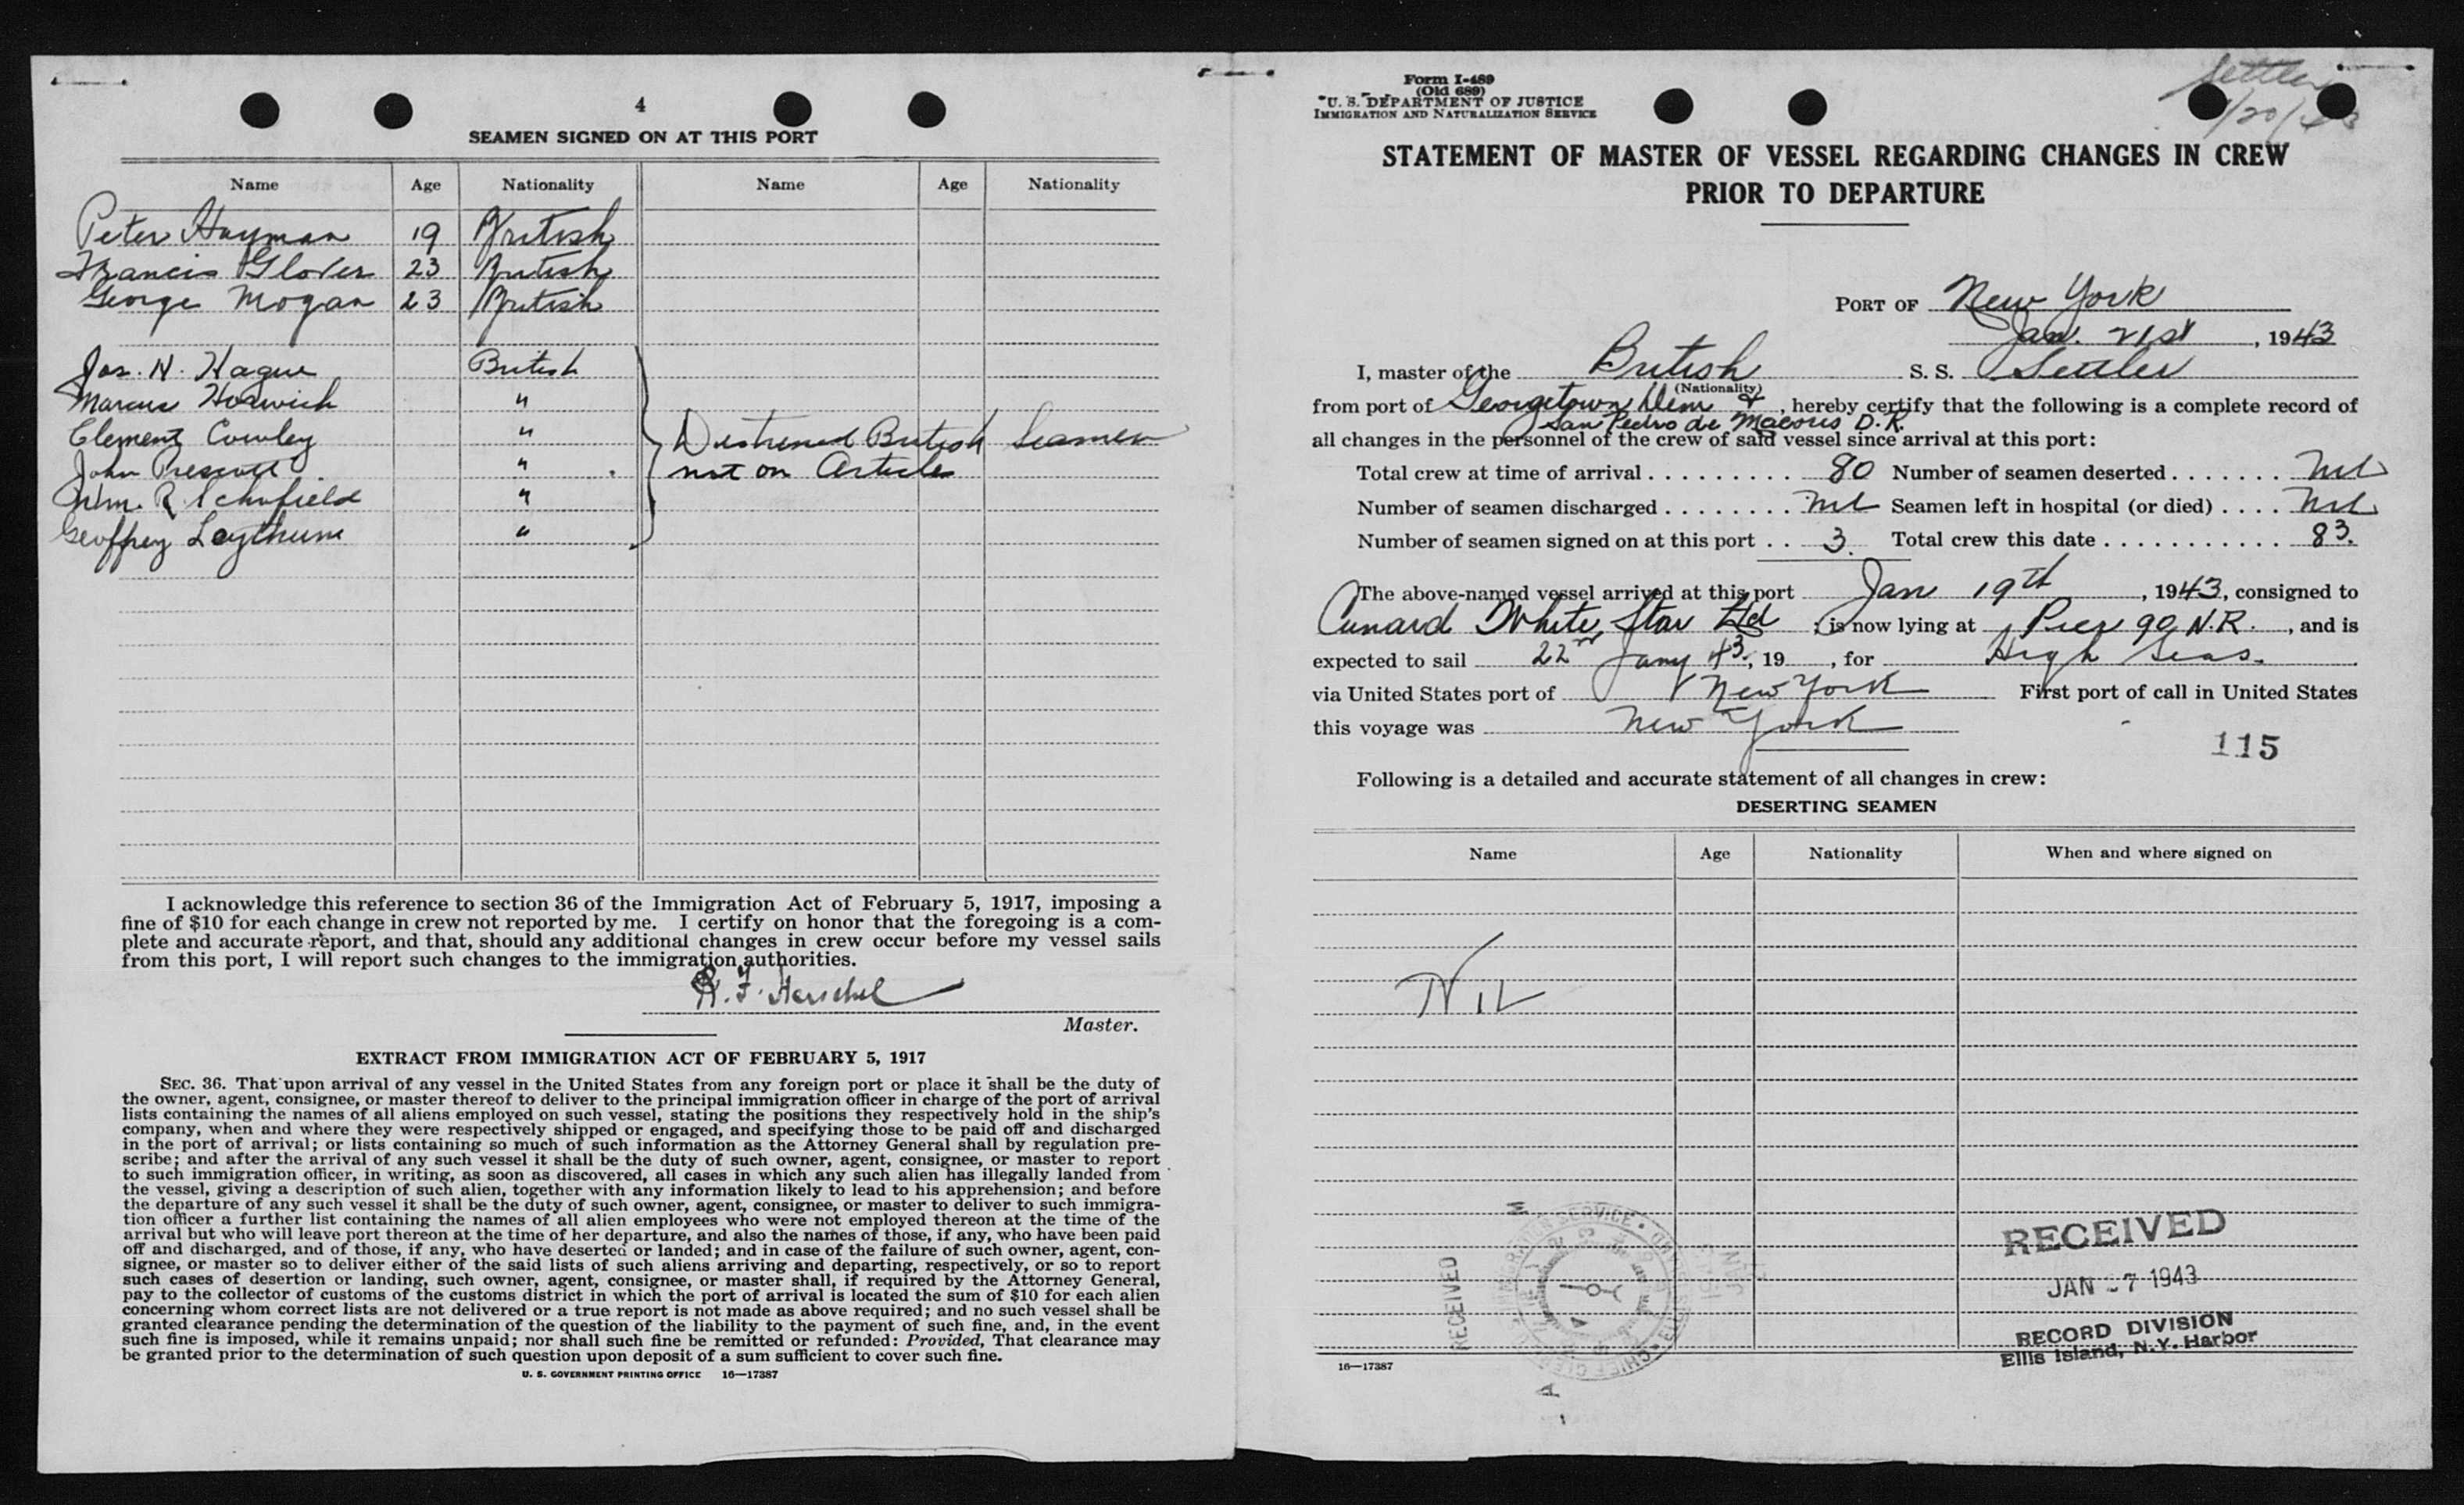 4
SEAMEN SIGNED ON AT THIS PORT
Name Age Nationality Name Age Nationality
Peter Hayman 19 British
Francis Glover 23 British
George Mogan 23 British
Jos. H. Hague British
Marcus Horwich "
Clement Cowley "
John Prescott "
Wm. R. Schofield "
Geoffrey Laythum "
Distressed British Seamen
not on Articles
I acknowledge this reference to section 36 of the Immigration Act of February 5, 1917, imposing a
fine of $10 for each change in crew not reported by me. I certify on honor that the foregoing is a com-
plete and accurate report, and that, should any additional changes in crew occur before my vessel sails
from this port, I will report such changes to the immigration authorities.
R. F. Herschel
Master.
EXTRACT FROM IMMIGRATION ACT OF FEBRUARY 5, 1917
SEC. 36. That upon arrival of any vessel in the United States from any foreign port or place it shall be the duty of
the owner, agent, consignee, or master thereof to deliver to the principal immigration officer in charge of the port of arrival
lists containing the names of all aliens employed on such vessel, stating the positions they respectively hold in the ship's
company, when and where they were respectively shipped or engaged, and specifying those to be paid off and discharged
in the port of arrival; or lists containing so much of such information as the Attorney General shall by regulation pre-
scribe; and after the arrival of any such vessel it shall be the duty of such owner, agent, consignee, or master to report
to such immigration officer, in writing, as soon as discovered, all cases in which any such alien has illegally landed from
the vessel, giving a description of such alien, together with any information likely to lead to his apprehension; and before
the departure of any such vessel it shall be the duty of such owner, agent, consignee, or master to deliver to such immigra-
tion officer a further list containing the names of all alien employees who were not employed thereon at the time of the
arrival but who will leave port thereon at the time of her departure, and also the names of those, if any, who have been paid
off and discharged, and of those, if any, who have deserted or landed; and in case of the failure of such owner, agent, con-
signee, or master so to deliver either of the said lists of such aliens arriving and departing, respectively, or so to report
such cases of desertion or landing, such owner, agent, consignee, or master shall, if required by the Attorney General,
pay to the collector of customs of the customs district in which the port of arrival is located the sum of $10 for each alien
concerning whom correct lists are not delivered or a true report is not made as above required; and no such vessel shall be
granted clearance pending the determination of the question of the liability to the payment of such fine, and, in the event
such fine is imposed, while it remains unpaid; nor shall such fine be remitted or refunded: Provided, That clearance may
be granted prior to the determination of such question upon deposit of a sum sufficient to cover such fine.
U. S. GOVERNMENT PRINTING OFFICE 16—17387
Form I-489
(Old 689)
U. S. DEPARTMENT OF JUSTICE
IMMIGRATION AND NATURALIZATION SERVICE
Settler
1/20/43
STATEMENT OF MASTER OF VESSEL REGARDING CHANGES IN CREW
PRIOR TO DEPARTURE
PORT OF New York
Jan. 21st, 1943
I, master of the British S. S. Settler
(Nationality)
from port of Georgetown Dem &, hereby certify that the following is a complete record of
San Pedro de Macoris D.R.
all changes in the personnel of the crew of said vessel since arrival at this port:
Total crew at time of arrival . . . . . . . . . 80 Number of seamen deserted . . . . . . . Nil
Number of seamen discharged . . . . . . . . Nil Seamen left in hospital (or died) . . . . Nil
Number of seamen signed on at this port . . 3. Total crew this date . . . . . . . . . . . . 83.
The above-named vessel arrived at this port Jan 19th, 1943, consigned to
Cunard White Star Ltd; is now lying at Pier 90 N.R., and is
expected to sail 22nd Jany 43, 19 , for High Seas.
via United States port of New York First port of call in United States
this voyage was New York
115
Following is a detailed and accurate statement of all changes in crew:
DESERTING SEAMEN
Name Age Nationality When and where signed on
NIL
RECEIVED
RECEIVED
JAN 27 1943
RECORD DIVISION
Ellis Island, N.Y. Harbor
16—17387